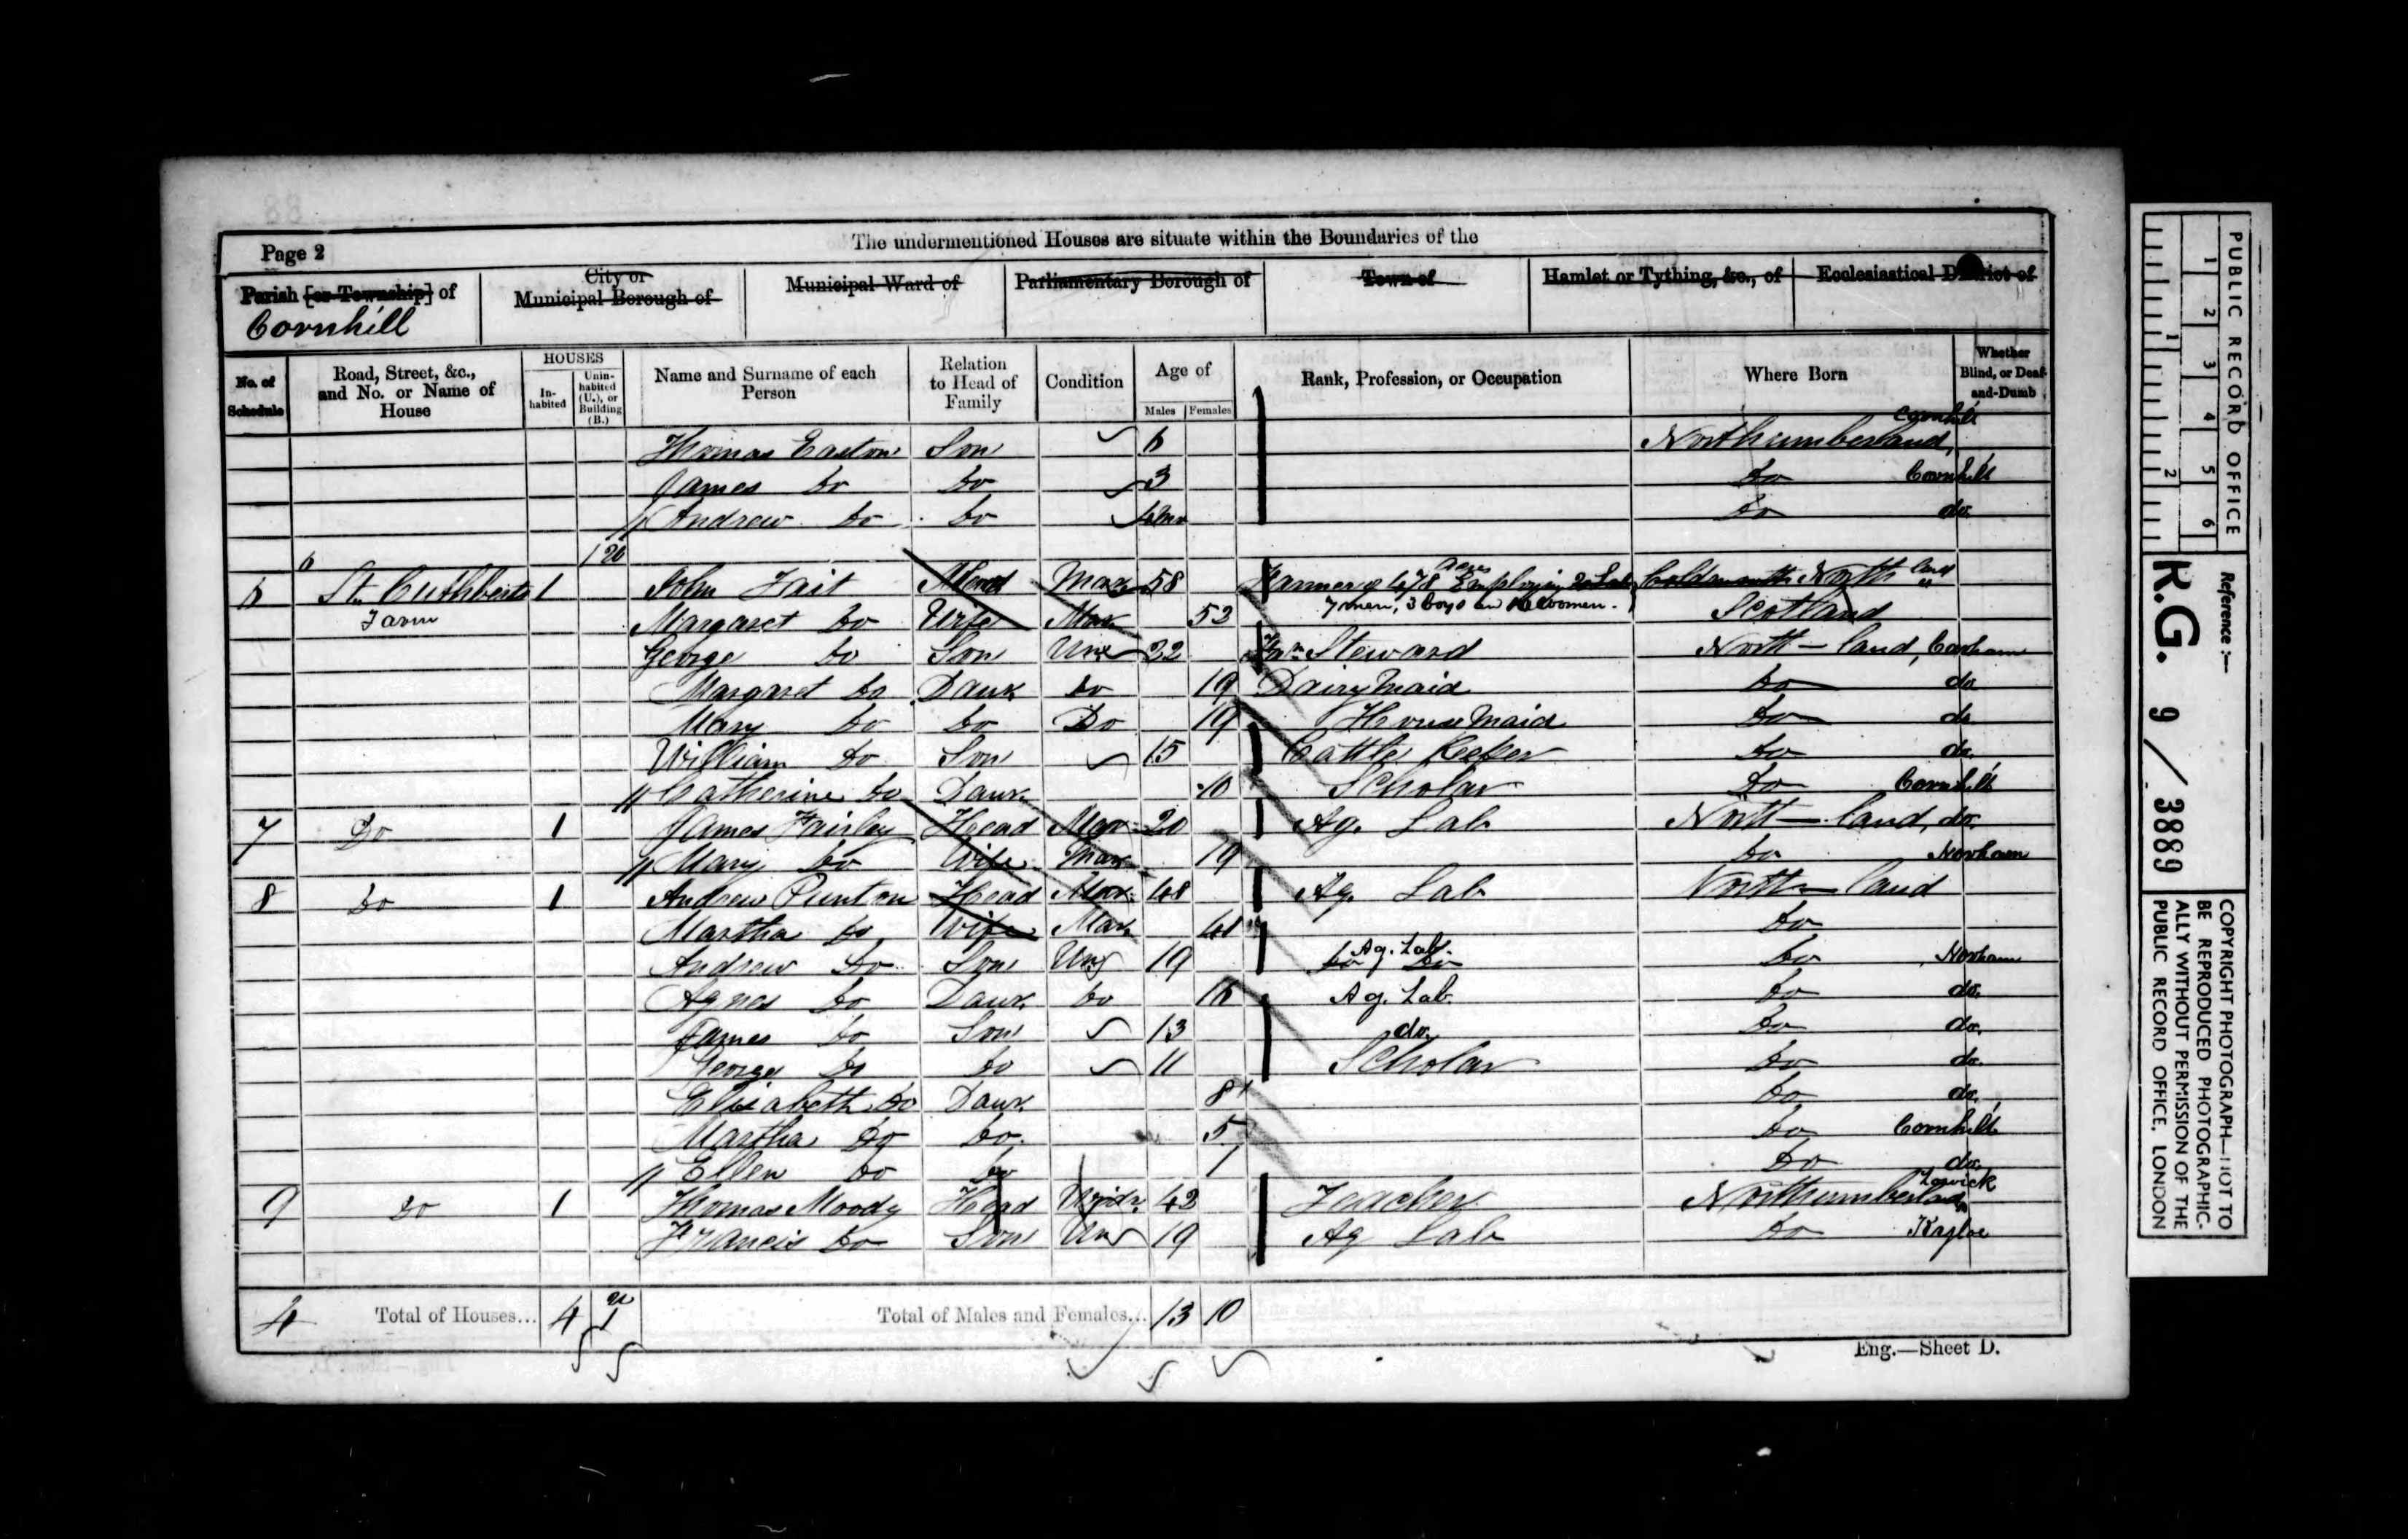 Page 2
The undermentioned Houses are situate within the Boundaries of the
Parish [or Township] of
Cornhill
City or Municipal Borough of
Municipal Ward of
Parliamentary Borough of
Town of
Hamlet or Tything, &c., of
Ecclesiastical District of
No. of Schedule
Road, Street, &c., and No. or Name of House
HOUSES
In-habited
Unin-habited (U.), or Building (B.)
Name and Surname of each Person
Relation to Head of Family
Condition
Age of
Males
Females
Rank, Profession, or Occupation
Where Born
Whether Blind, or Deaf-and-Dumb
Thomas Easton Son 6 Northumberland, Cornhill
James Do Do 3 Do Cornhill
Andrew Do Do Do do.
6 St. Cuthberts Farm 1 John Tait Head Mar 58 Farmer of 478 Acres Employing 7 men, 3 boys
Margaret Do Wife Mar 52 Scotland
George Do Son Un 22 Steward North-land, Carham
Margaret Do Daur. Do 19 Dairy Maid Do do
Mary Do Do Do 19 House Maid Do do
William Do Son 15 Cattle Keeper Do do.
Catherine Do Daur. 10 Scholar Do Cornhill
7 Do 1 James Fairley Head Mar 20 Ag. Lab North-land, do.
Mary Do Wife Mar 19 Do Norham
8 Do 1 Andrew Punton Head Mar 48 Ag. Lab North-land
Martha Do Wife Mar 41 Do
Andrew Do Son Un 19 Ag. Lab. Do Norham
Agnes Do Daur. Do 16 Ag. Lab. Do do.
James Do Son 13 do. Do do.
George Do Do 11 Scholar Do do.
Elisabeth Do Daur. 8 Do do.
Martha Do Do. 5 Do Cornhill
Ellen Do Do 1 Do do.
9 Do 1 Thomas Moody Head Widr. 42 Teacher Northumberland Lowick
Francis Do Son Un 19 Ag Lab Do Kyloe
4 Total of Houses... 4 1 Total of Males and Females... 13 10
Eng.—Sheet D.
PUBLIC RECORD OFFICE
1 2 3 4 5 6
1 2
Reference:—
R.G. 9/3889
COPYRIGHT PHOTOGRAPH—NOT TO
BE REPRODUCED PHOTOGRAPHIC-
ALLY WITHOUT PERMISSION OF THE
PUBLIC RECORD OFFICE, LONDON